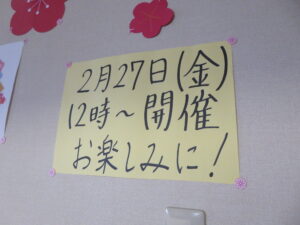 2月27日(金)
12時～開催
お楽しみに!